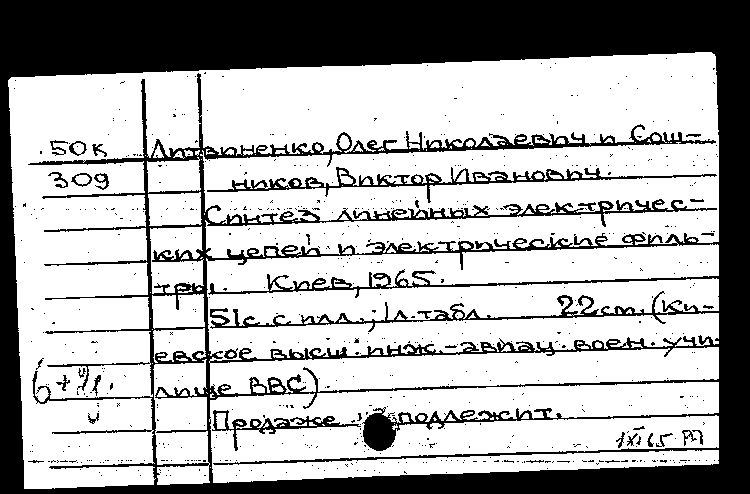 50к Литвиненко, Олег Николаевич и Сош-
309 ников, Виктор Иванович.
Синтез линейных электричес-
ких цепей и электрические филь-
тры. Киев, 1965.
51с. с илл.; 1л. табл. 22см. (Ки-
евское высш. инж.-авиац. воен. учи-
лище ВВС)
Продаже подлежит.